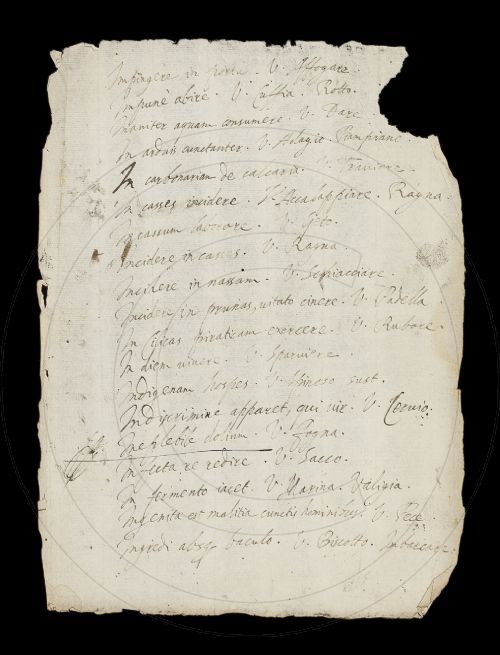 Impingere in portu. V. Affogare.
Impunè abire. V. Rotto.
Inaniter aquam consumere. V. Dare.
In arduis cunctanter. V. Adagio.
In carbonariam de calcaria. V.
In casses incidere. V. Accalappiare. Ragna.
In cassum laborare. V.
Incidere in casses. V. Ragna.
Incidere in nassam. V. Schiacciare.
Incidere in prunas, vitato cinere. V. Padella.
In piraticam exercere. V. Rubare.
In diem vivere. V. Sparviere.
Indigenam hospes. V. Spinoso sust.
In discrimine apparet, qui vir. V.
Ineffebile V. Fogna.
Infecta re redire. V. Sacco.
In fermento iacet. V. Marina. Valigia.
Ingenita est malitia cunctis hominibus. V. Pece.
Ingredi absq. baculo. V. Biscotto.